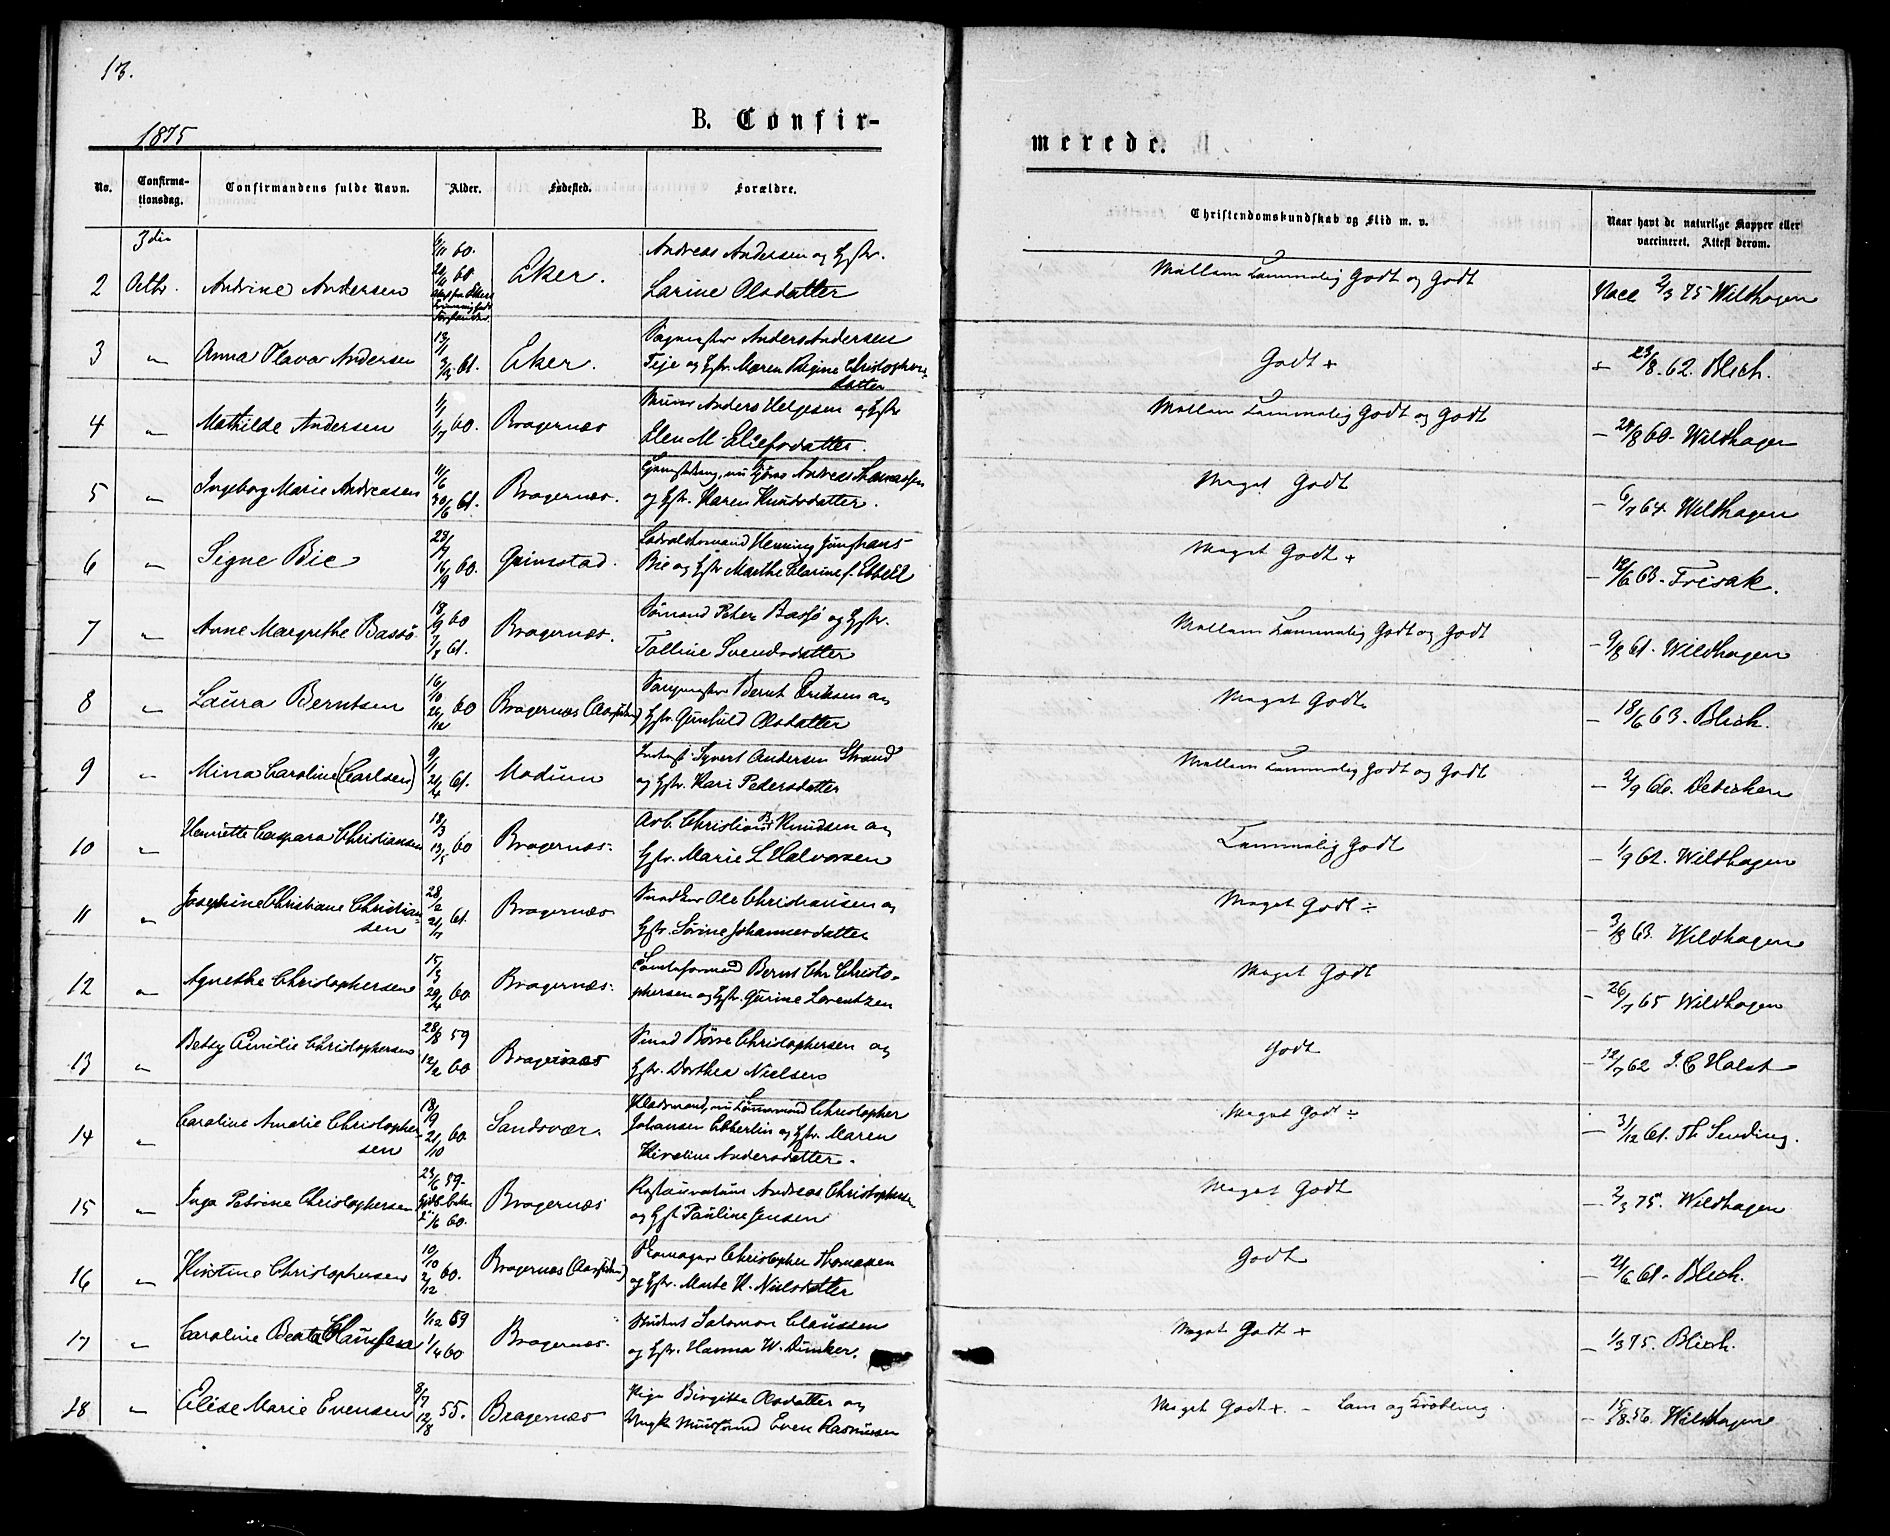 13.
1875
B. Confir-
merede.
No.
Confirma-
tionsdag.
Confirmandens fulde Navn.
Alder.
Fødested.
Forældre.
Christendomskundskab og Flid m. v.
Naar havt de naturlige Kopper eller
vaccineret. Attest derom.
3die
Octbr.
2 Andrine Andersen 60. Eker. Andreas Andersen og Hstr.
Larine Olsdatter Mellem Temmelig Godt og Godt Vacc 2/3 75 Wildhagen
3 " Anna Olava Andersen 61. Eker. Anders Andersen
Teje og Hstr. Maren Regine Christophers-
datter Godt + 23/8. 62. Blich.
4 " Mathilde Andersen 1/7 60. Bragernæs Anders Helgesen og Hstr
Elen M. Eliefsdatter. Mellem Temmelig Godt og Godt – 28/8 60. Wildhagen
5 " Ingeborg Marie Andreasen 11/6 30/6 61. Bragernæs. Andreas Thomassen
og Hstr. Karen Knudsdatter. Meget Godt – 6/7 64. Wildhagen
6 " Signe Bie 16/9 60. Grimstad. Henning Junghans
Bie og Hstr Marthe Clarine f. Ebbell Meget Godt + – 12/6 63. Frisak.
7 " Anne Margrethe Bassø. 18/9 60 61. Bragernæs. Sømand Peter Bassø og Hstr.
Talline Svendsdatter Mellem Temmelig Godt og Godt – 9/8 61. Wildhagen
8 " Laura Berntsen 16/10 26/12 60 Bragernæs Bernt Eriksen og
Hstr. Gunhild Olsdatter Meget Godt. – 18/6 63. Blich.
9 " Mina Caroline (Carlsen) 9/1 21/4 61. Modum Syvert Andersen Strand
og Hstr. Kari Pedersdatter Mellem Temmelig Godt og Godt – 2/9 66.
10 " Henriette Caspara Christiansen 18/3 13/5 60 Bragernæs. Arb. Christian B. Knudsen og
Hstr. Marie L Halvorsen Temmelig Godt – 1/9 62. Wildhagen
11 " Josephine Christiane Christian-
sen 28/2 21/7 61. Bragernæs Snedker Ole Christiansen og
Hstr. Sørine Johannesdatter Meget Godt ÷ – 3/8 63. Wildhagen
12 " Agnethe Christophersen 15/3 29/4 60 Bragernæs. Bernt Chr. Christo-
phersen og Hstr. Gurine Lorentzen Meget Godt – 26/7 65 Wildhagen
13 " Betty Emilie Christophersen 28/8 59 12/2 60 Bragernæs Smed Børre Christophersen og
Hstr. Dorthea Nielsen Godt – 12/7 62 J. C Holst
14 " Caroline Amalie Christopher-
sen 18/9 21/10 60. Sandsvær. Christopher
Johansen Ebberlin og Hstr. Maren
Andersdatter. Meget Godt ÷ – 3/12 61. Th Sending.
15 " Inga Petrine Christophersen 23/6 59. 60. Bragernæs Andreas Christophersen
og Hst Pauline Jensen Meget Godt – 2/3 75. Wildhagen
16 " Kirstine Christophersen 10/10 2/12 60. Bragernæs Christopher Thomassen
og Hstr. Marte K. Nielsdatter Godt – 21/6 61. Blich.
17 " Caroline Beate Claussen 1/12 59 1/4 60 Bragernæs. Student Salomon Claussen
og Hstr. Hanna W. Dunker. Meget Godt + – 1/3 75. Blich.
18 " Elise Marie Evensen 8/7 12/8 55. Bragernæs Pige Birgitte Olsdatter og
Even Rasmussen Meget Godt +. – Lam og – 15/8. 56. Wildhagen